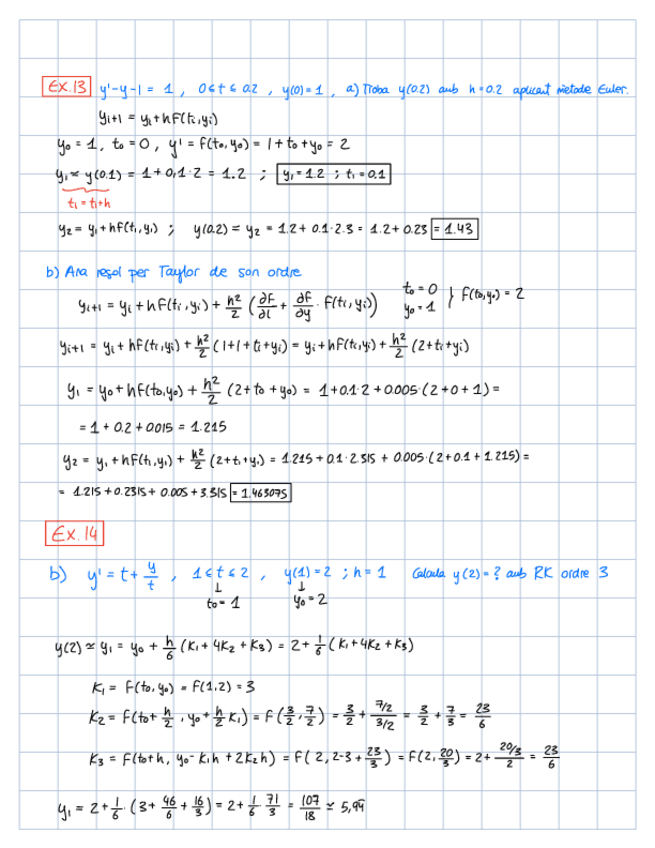 Ex.13 y'-y-1 = 1 , 0≤t≤0.2 , y(0)=1 , a) Troba y(0.2) amb h=0.2 aplicant metode Euler.
yᵢ₊₁ = yᵢ+hf(tᵢ,yᵢ)
y₀ = 1, t₀ = 0, y' = f(t₀,y₀) = 1+t₀+y₀ = 2
y₁ ≈ y(0.1) = 1+0,1·2 = 1.2 ; y₁=1.2 ; t₁=0.1
t₁ = tᵢ+h
y₂ = y₁+hf(t₁,y₁) ; y(0.2) ≈ y₂ = 1.2+ 0.1·2.3 = 1.2+0.23 = 1.43
b) Ara resol per Taylor de son ordre
yᵢ₊₁ = yᵢ + hf(tᵢ,yᵢ) + h²/2 (∂f/∂t + ∂f/∂y · f(tᵢ,yᵢ)) t₀=0 y₀=1 } f(t₀,y₀) = 2
yᵢ₊₁ = yᵢ+hf(tᵢ,yᵢ) + h²/2 (1+1+tᵢ+yᵢ) = yᵢ+hf(tᵢ,yᵢ)+ h²/2 (2+tᵢ+yᵢ)
y₁ = y₀+hf(t₀,y₀) + h²/2 (2+t₀+y₀) = 1+0.1·2+0.005·(2+0+1) =
= 1 + 0.2 + 0015 = 1.215
y₂ = y₁+hf(t₁,y₁) + h²/2 (2+t₁+y₁) = 1.215+0.1·2.315 + 0.005·(2+0.1+1.215) =
= 1.215+0.2315+ 0.005+3.315 = 1.463075
Ex.14
b) y' = t+ y/t , 1≤t≤2 , y(1)=2 ; h=1 Calcula y(2)=? amb RK ordre 3
↓ ↓
t₀=1 y₀=2
y(2) ≈ y₁ = y₀ + h/6 (K₁+4K₂+K₃) = 2+ 1/6 (K₁+4K₂+K₃)
K₁ = f(t₀,y₀) = f(1,2) = 3
K₂ = f(t₀+ h/2 , y₀+ h/2 K₁) = f(3/2, 7/2) = 3/2 + (7/2)/(3/2) = 3/2 + 7/3 = 23/6
K₃ = f(t₀+h, y₀-K₁h+2K₂h) = f(2, 2-3+ 23/3) = f(2, 20/3) = 2+ (20/3)/2 = 23/6
y₁ = 2+ 1/6 · (3+ 46/6 + 16/3) = 2+ 1/6 · 71/3 = 107/18 ≈ 5,94